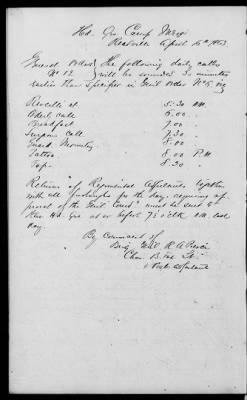 Hd. Qrs Camp Meigs
Readville April 15th 1863
General Orders } The following daily calls
No 12 } will be sounded 30 minutes
earlier than specified in Genl Order No 5, viz
Reveille at 5.30 A.M.
Sick call 6.00 "
Breakfast 7.00 "
Surgeons Call 7.30 "
Guard Mounting 8.00 "
Tattoo 8.00 P.M.
Taps 8.30 "
Returns of Regimental Adjutants together
with all furloughs for the day, requiring ap-
proval of the Genl Comdg must be sent to
these Hd. Qrs at or before 7½ o'clk A.M. each
day.
By command of
Brig Genl R A Peirce
Chas. B.
Post Adjutant